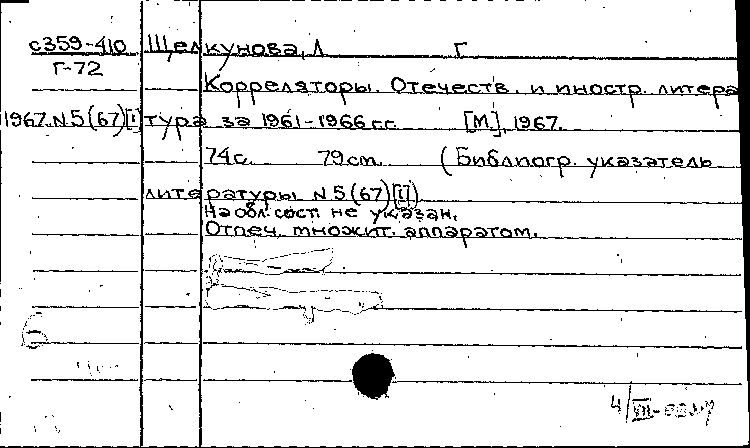 с359-410 Щелкунова, Л Г
Г-72
Корреляторы. Отечеств. и иностр. литера
1967.N5(67)[I] тура за 1961-1966 гг. [М], 1967.
74с. 79cm. (Библиогр. указатель
литературы N5(67)[I])
На обл. сост. не указан.
Отпеч. множит. аппаратом.
4/VIII